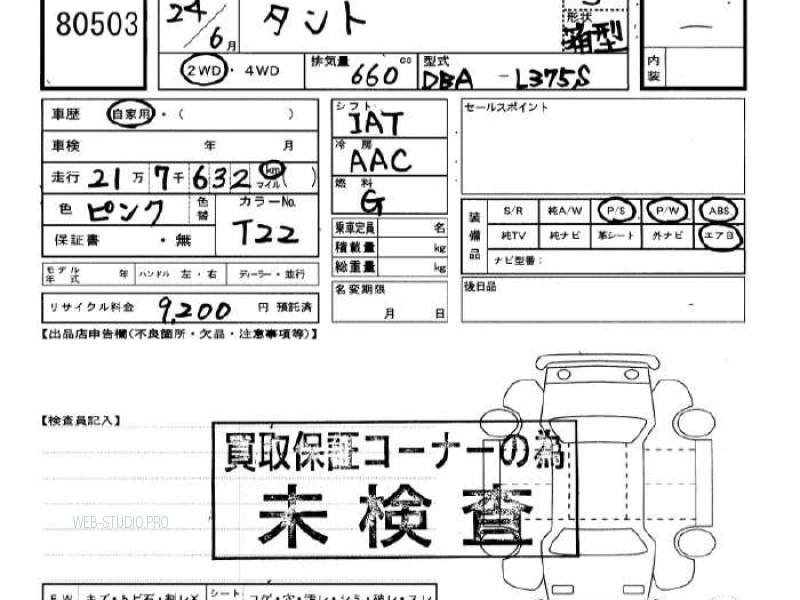 80503
24/6月
タント
形状
箱型
2WD・4WD
排気量 660 cc
型式 DBA-L375S
内装
車歴 自家用・( )
車検 年 月
走行 21万7千632 km マイル( )
色 ピンク 色替 カラーNo. T22
保証書 ・無
モデル年式 年 ハンドル 左・右 ディーラー・並行
リサイクル料金 9,200 円 預託済
シフト IAT
冷房 AAC
燃料 G
乗車定員 名
積載量 kg
総重量 kg
名変期限
月 日
セールスポイント
装備品
S/R 純A/W P/S P/W ABS
純TV 純ナビ 革シート 外ナビ エアB
ナビ型番：
後日品
【出品店申告欄(不良箇所・欠品・注意事項等)】
【検査員記入】
買取保証コーナーの為
未検査
WEB-STUDIO.PRO